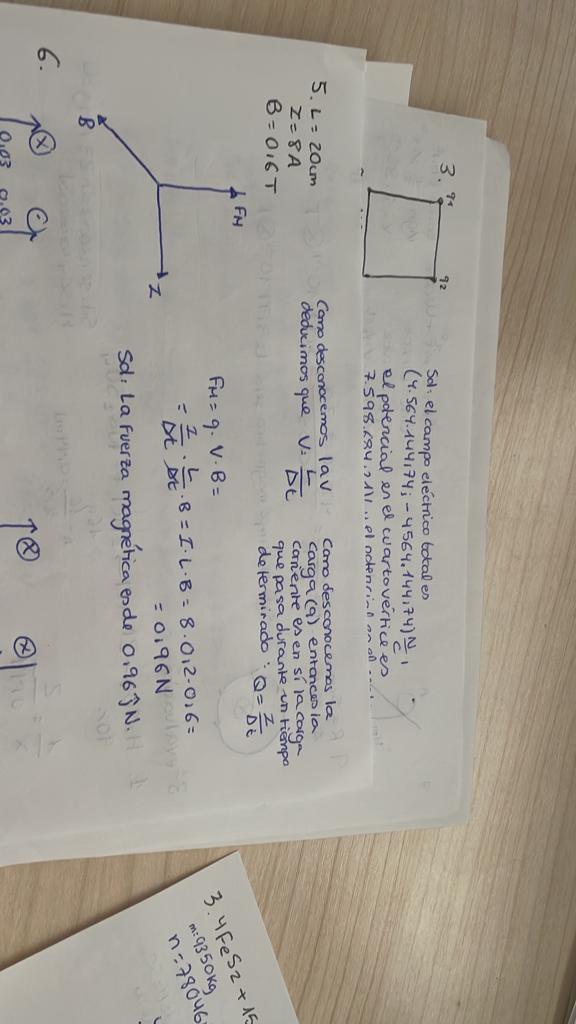 3. q1 q2
Sol: el campo eléctrico total es
(4.564.144,74; -4564.144,74) N/C,
el potencial en el cuarto vértice es
5. L = 20cm
I = 8A
B = 0,6 T
Como desconocemos la V
deducimos que V = L/Δt
Como desconocemos la
carga (q) entonces la
corriente es en sí la carga
que pasa durante un tiempo
determinado: Q = I/Δt
FM
I
B
FM = q · V · B =
= I/Δt · L/Δt · B = I · L · B = 8 · 0,2 · 0,6 =
= 0,96N
Sol: La fuerza magnética es de 0,96 ĵ N.
6.
0,03 0,03
3. 4FeS2 + 15
m=9350kg